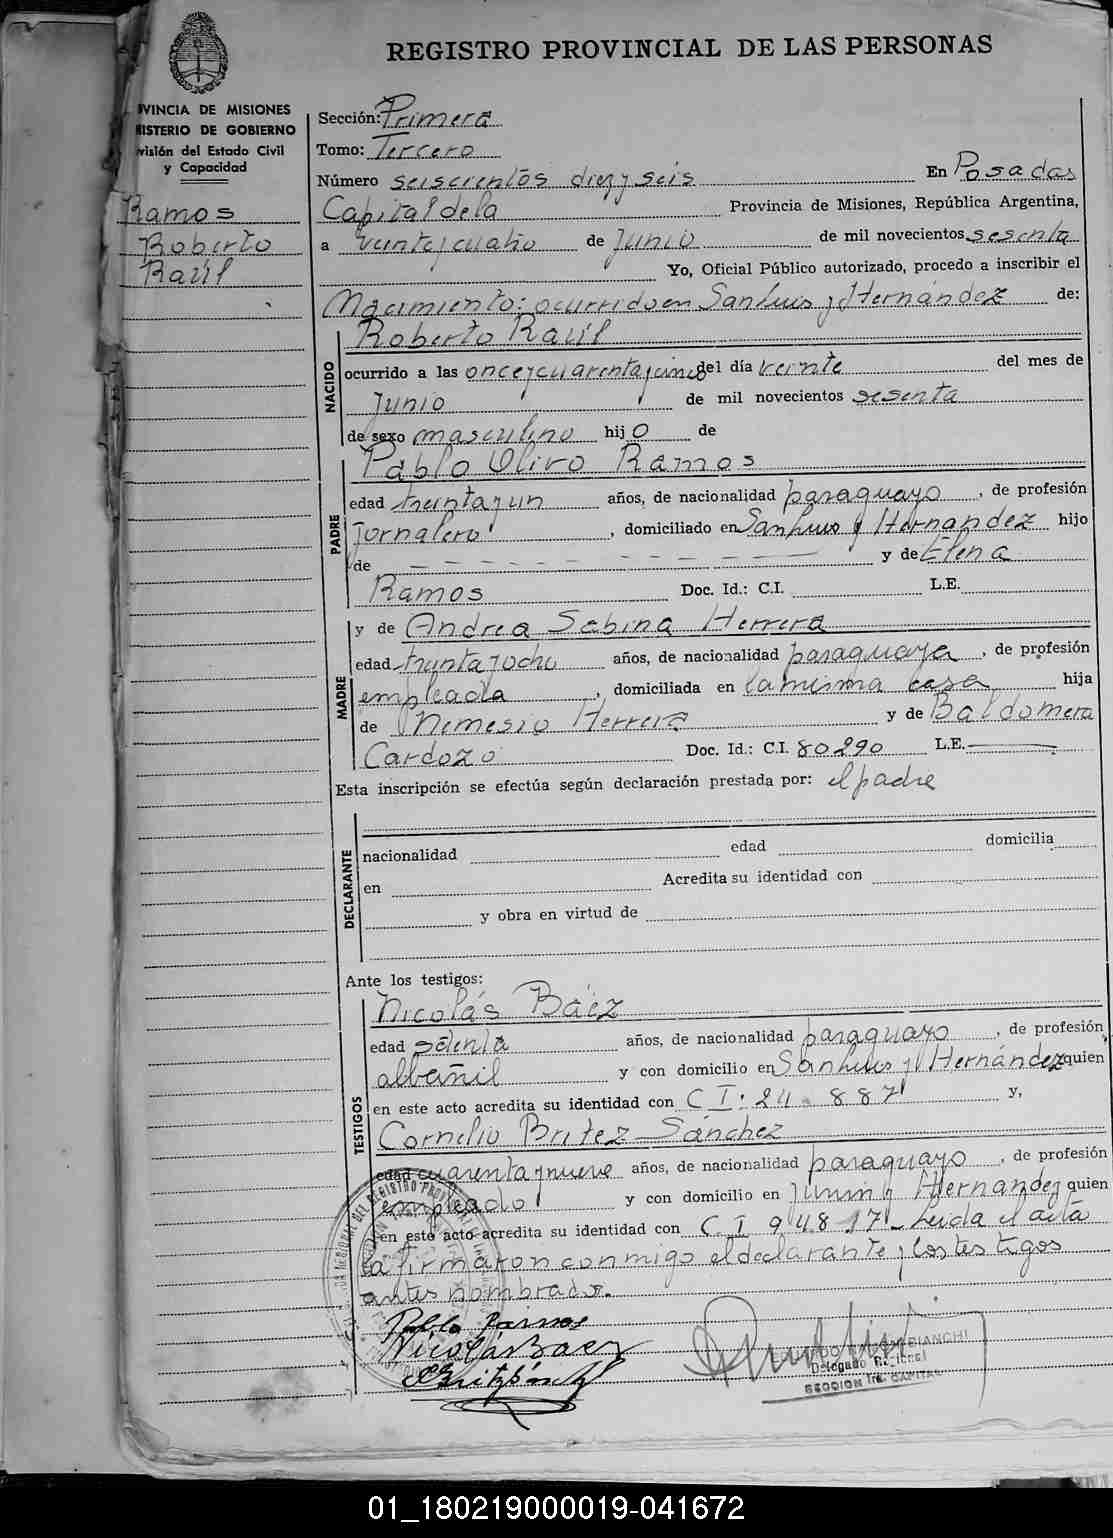 REGISTRO PROVINCIAL DE LAS PERSONAS
VINCIA DE MISIONES
ISTERIO DE GOBIERNO
visión del Estado Civil
y Capacidad
Ramos
Roberto
Raúl
Sección: Primera
Tomo: Tercero
Número seiscientos diez y seis En Posadas
Capital de la Provincia de Misiones, República Argentina,
a veinte y cuatro de Junio de mil novecientos sesenta
Yo, Oficial Público autorizado, procedo a inscribir el
Nacimiento: ocurrido en San Luis y Hernández de:
NACIDO
Roberto Raúl
ocurrido a las once y cuarenta y cinco del día veinte del mes de
Junio de mil novecientos sesenta
de sexo masculino hijo de
PADRE
Pablo Olivo Ramos
edad treinta y un años, de nacionalidad paraguayo, de profesión
jornalero, domiciliado en San Luis y Hernandez hijo
de — — — — — — — — — y de Elena
Ramos Doc. Id.: C.I. L.E.
MADRE
y de Andrea Sabina Herrera
edad treinta y ocho años, de nacionalidad paraguaya, de profesión
empleada, domiciliada en la misma casa hija
de Nemesio Herrera y de Baldomera
Cardozo Doc. Id.: C.I. 80290 L.E.
Esta inscripción se efectúa según declaración prestada por: el padre
DECLARANTE
nacionalidad edad domicilia
en Acredita su identidad con
y obra en virtud de
Ante los testigos:
TESTIGOS
Nicolás Báez
edad años, de nacionalidad paraguayo, de profesión
albañil y con domicilio en San Luis y Hernández quien
en este acto acredita su identidad con C I: 24.887 y,
Cornelio Britez Sánchez
edad cuarenta y nueve años, de nacionalidad paraguayo, de profesión
empleado y con domicilio en Junin y Hernandez quien
en este acto acredita su identidad con C. I 94817 - Leida el acta
la firmaron conmigo el declarante y los testigos
antes nombrados.
Pablo Ramos
Nicolás Baez
BIANCHI
Delegado Regional
SECCION 1ra. CAPITAL
01_180219000019-041672